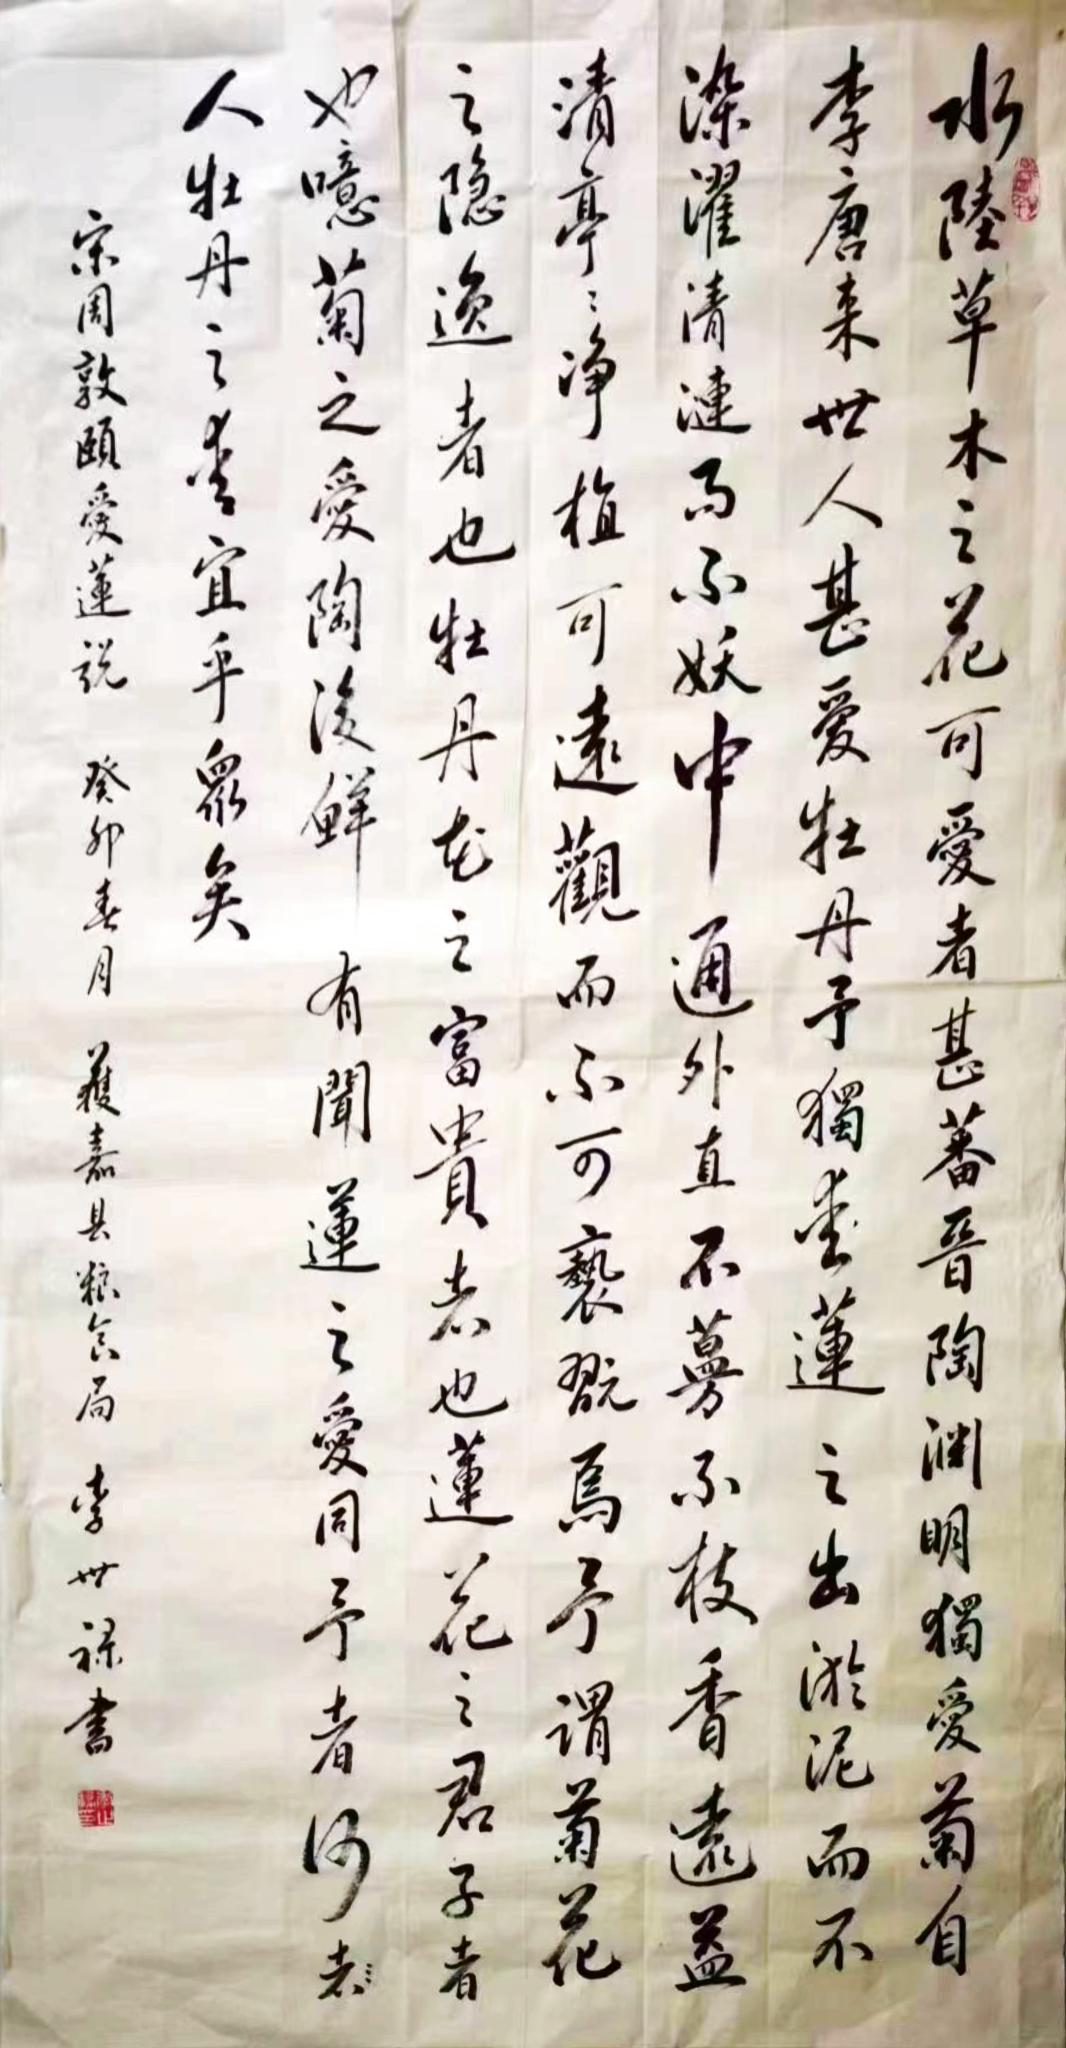 水陸草木之花可愛者甚蕃晋陶渊明獨愛菊自
李唐来世人甚愛牡丹予獨愛蓮之出淤泥而不
染濯清漣而不妖中通外直不蔓不枝香遠益
清亭〻净植可遠觀而不可褻翫焉予謂菊花
之隐逸者也牡丹花之富貴者也蓮花之君子者
也噫菊之愛陶後鮮有聞蓮之愛同予者何者
人牡丹之愛宜乎眾矣
宋周敦頤愛蓮説 癸卯春月 獲嘉县粮食局 李世禄書